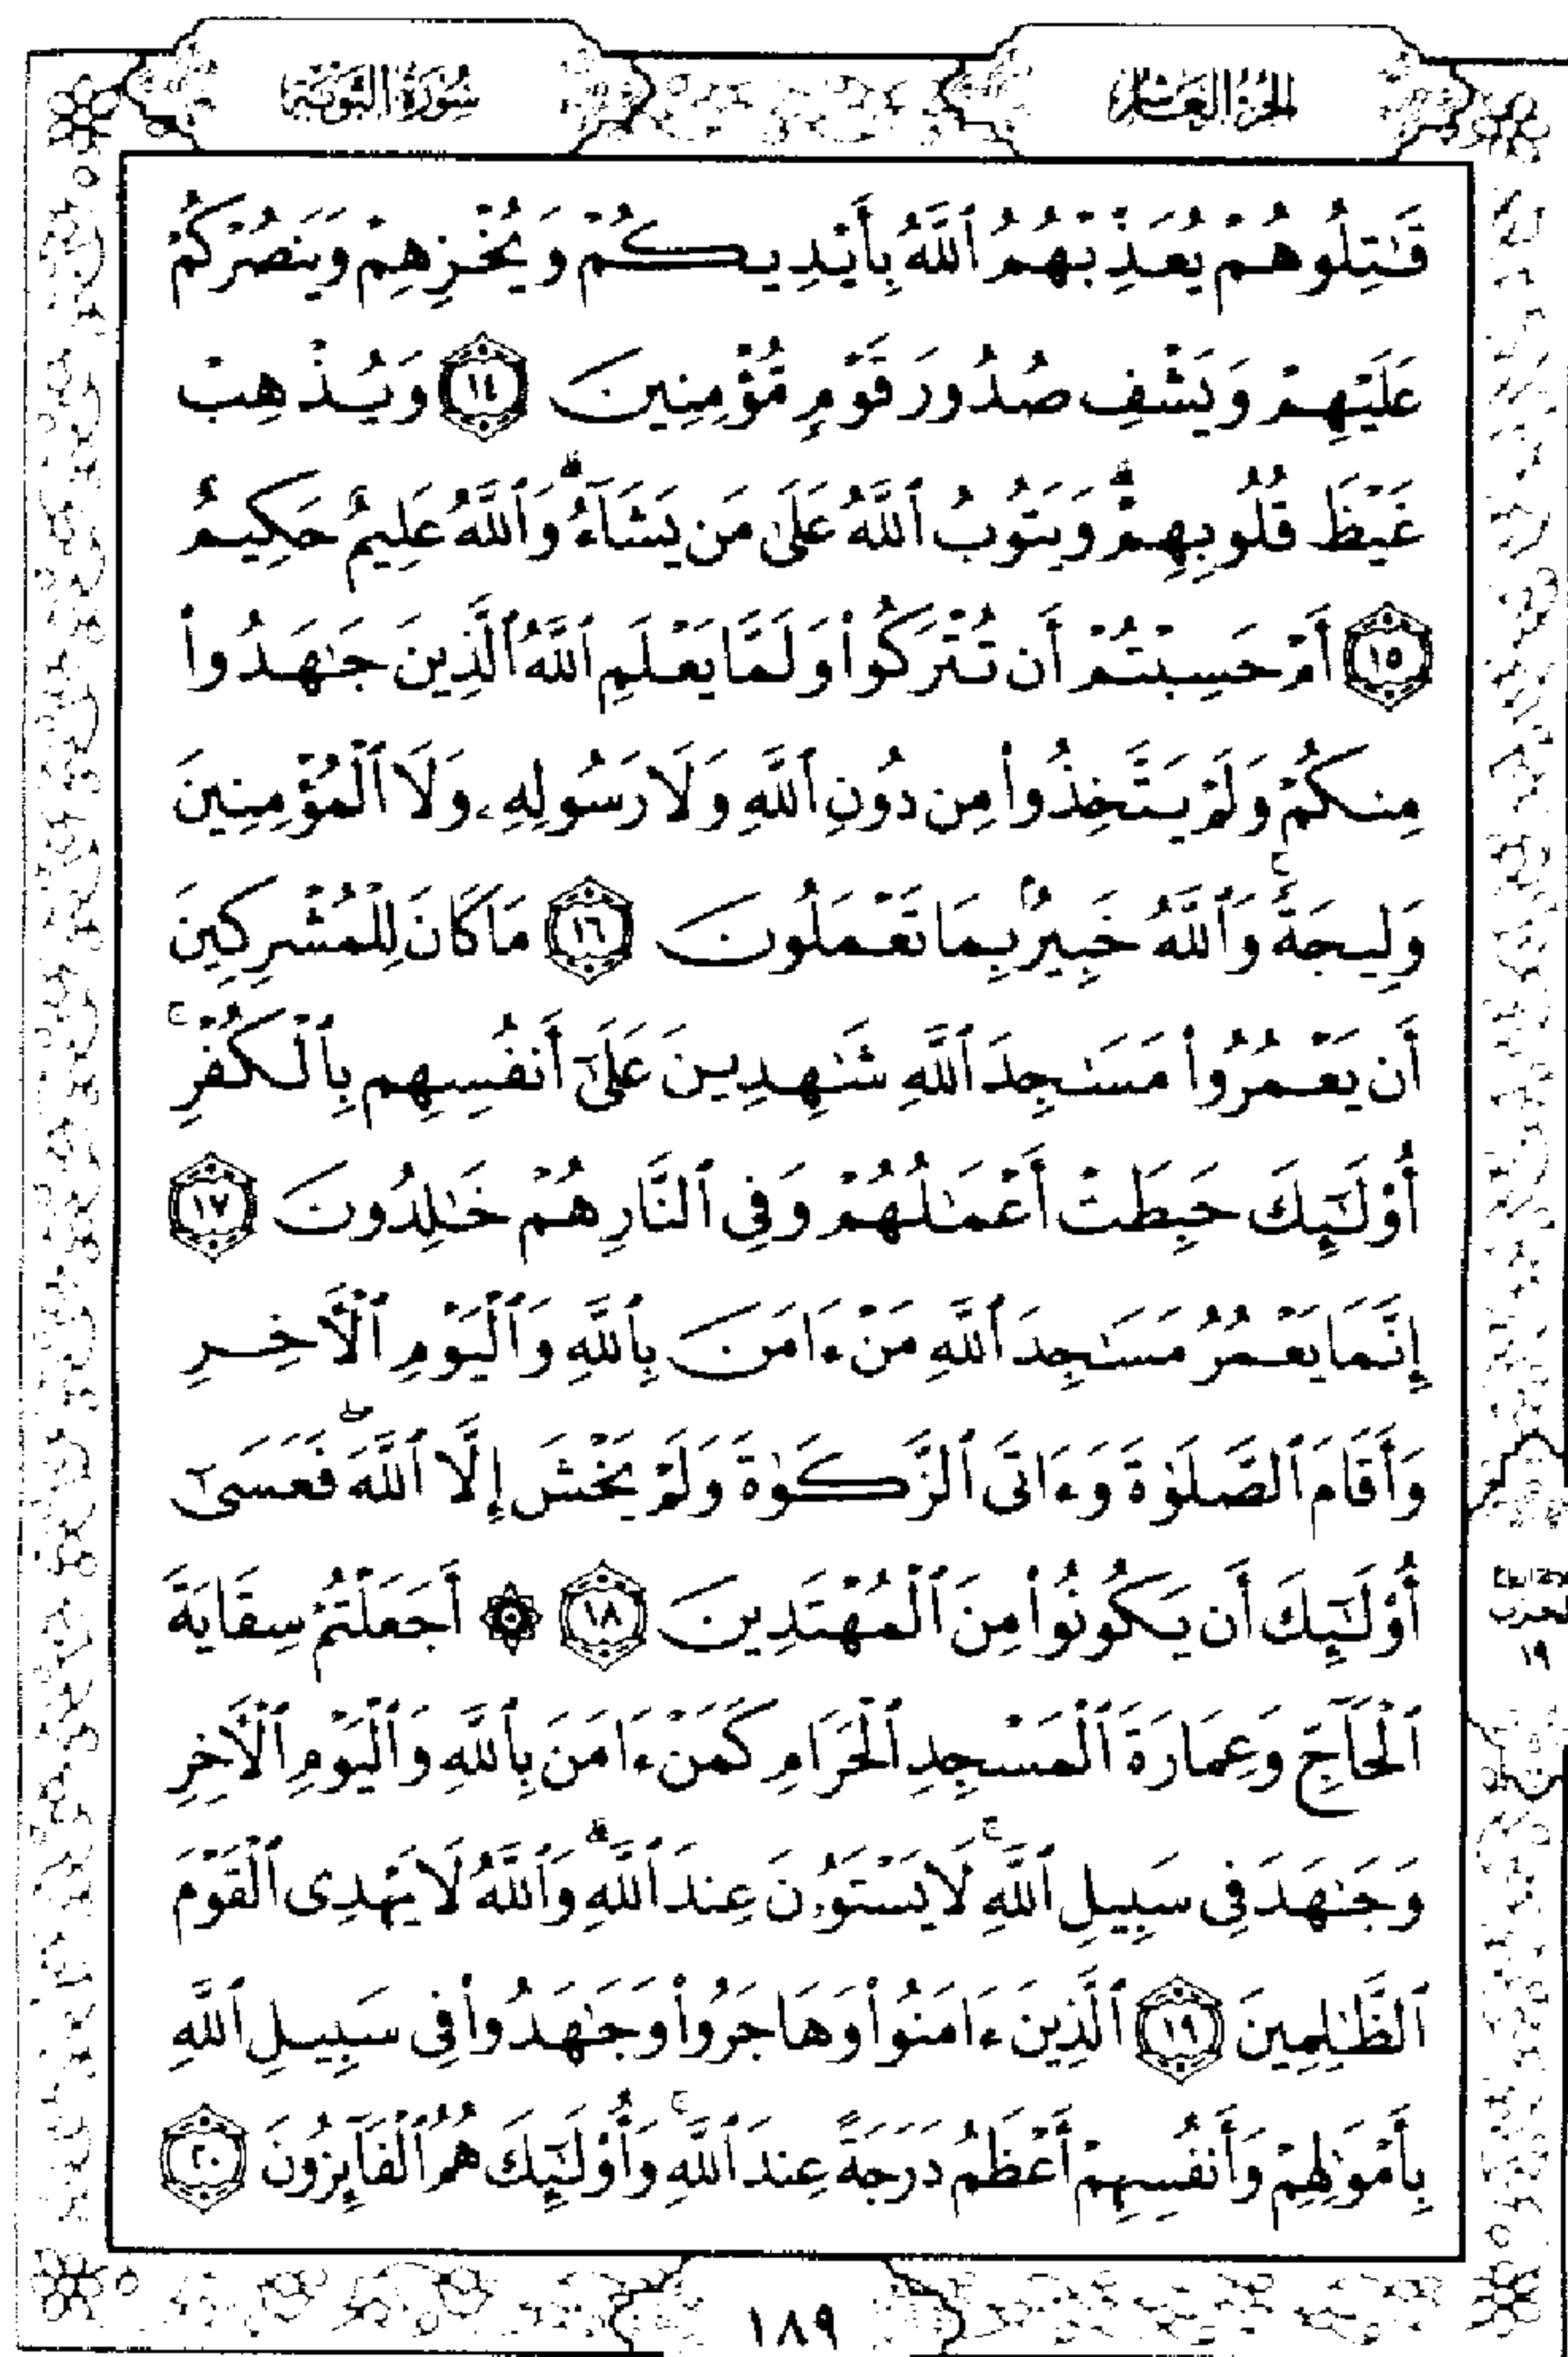 الجزء العاشر
سورة التوبة
قَٰتِلُوهُمْ يُعَذِّبْهُمُ ٱللَّهُ بِأَيْدِيكُمْ وَيُخْزِهِمْ وَيَنصُرْكُمْ
عَلَيْهِمْ وَيَشْفِ صُدُورَ قَوْمٍ مُّؤْمِنِينَ ١٤ وَيُذْهِبْ
غَيْظَ قُلُوبِهِمْ ۗ وَيَتُوبُ ٱللَّهُ عَلَىٰ مَن يَشَآءُ ۗ وَٱللَّهُ عَلِيمٌ حَكِيمٌ
١٥ أَمْ حَسِبْتُمْ أَن تُتْرَكُوا۟ وَلَمَّا يَعْلَمِ ٱللَّهُ ٱلَّذِينَ جَٰهَدُوا۟
مِنكُمْ وَلَمْ يَتَّخِذُوا۟ مِن دُونِ ٱللَّهِ وَلَا رَسُولِهِۦ وَلَا ٱلْمُؤْمِنِينَ
وَلِيجَةً ۚ وَٱللَّهُ خَبِيرٌۢ بِمَا تَعْمَلُونَ ١٦ مَا كَانَ لِلْمُشْرِكِينَ
أَن يَعْمُرُوا۟ مَسَٰجِدَ ٱللَّهِ شَٰهِدِينَ عَلَىٰٓ أَنفُسِهِم بِٱلْكُفْرِ ۚ
أُو۟لَٰٓئِكَ حَبِطَتْ أَعْمَٰلُهُمْ وَفِى ٱلنَّارِ هُمْ خَٰلِدُونَ ١٧
إِنَّمَا يَعْمُرُ مَسَٰجِدَ ٱللَّهِ مَنْ ءَامَنَ بِٱللَّهِ وَٱلْيَوْمِ ٱلْءَاخِرِ
وَأَقَامَ ٱلصَّلَوٰةَ وَءَاتَى ٱلزَّكَوٰةَ وَلَمْ يَخْشَ إِلَّا ٱللَّهَ ۖ فَعَسَىٰٓ
أُو۟لَٰٓئِكَ أَن يَكُونُوا۟ مِنَ ٱلْمُهْتَدِينَ ١٨ ۞ أَجَعَلْتُمْ سِقَايَةَ
ٱلْحَآجِّ وَعِمَارَةَ ٱلْمَسْجِدِ ٱلْحَرَامِ كَمَنْ ءَامَنَ بِٱللَّهِ وَٱلْيَوْمِ ٱلْءَاخِرِ
وَجَٰهَدَ فِى سَبِيلِ ٱللَّهِ ۚ لَا يَسْتَوُۥنَ عِندَ ٱللَّهِ ۗ وَٱللَّهُ لَا يَهْدِى ٱلْقَوْمَ
ٱلظَّٰلِمِينَ ١٩ ٱلَّذِينَ ءَامَنُوا۟ وَهَاجَرُوا۟ وَجَٰهَدُوا۟ فِى سَبِيلِ ٱللَّهِ
بِأَمْوَٰلِهِمْ وَأَنفُسِهِمْ أَعْظَمُ دَرَجَةً عِندَ ٱللَّهِ ۚ وَأُو۟لَٰٓئِكَ هُمُ ٱلْفَآئِزُونَ ٢٠
الحزب
١٩
١٨٩